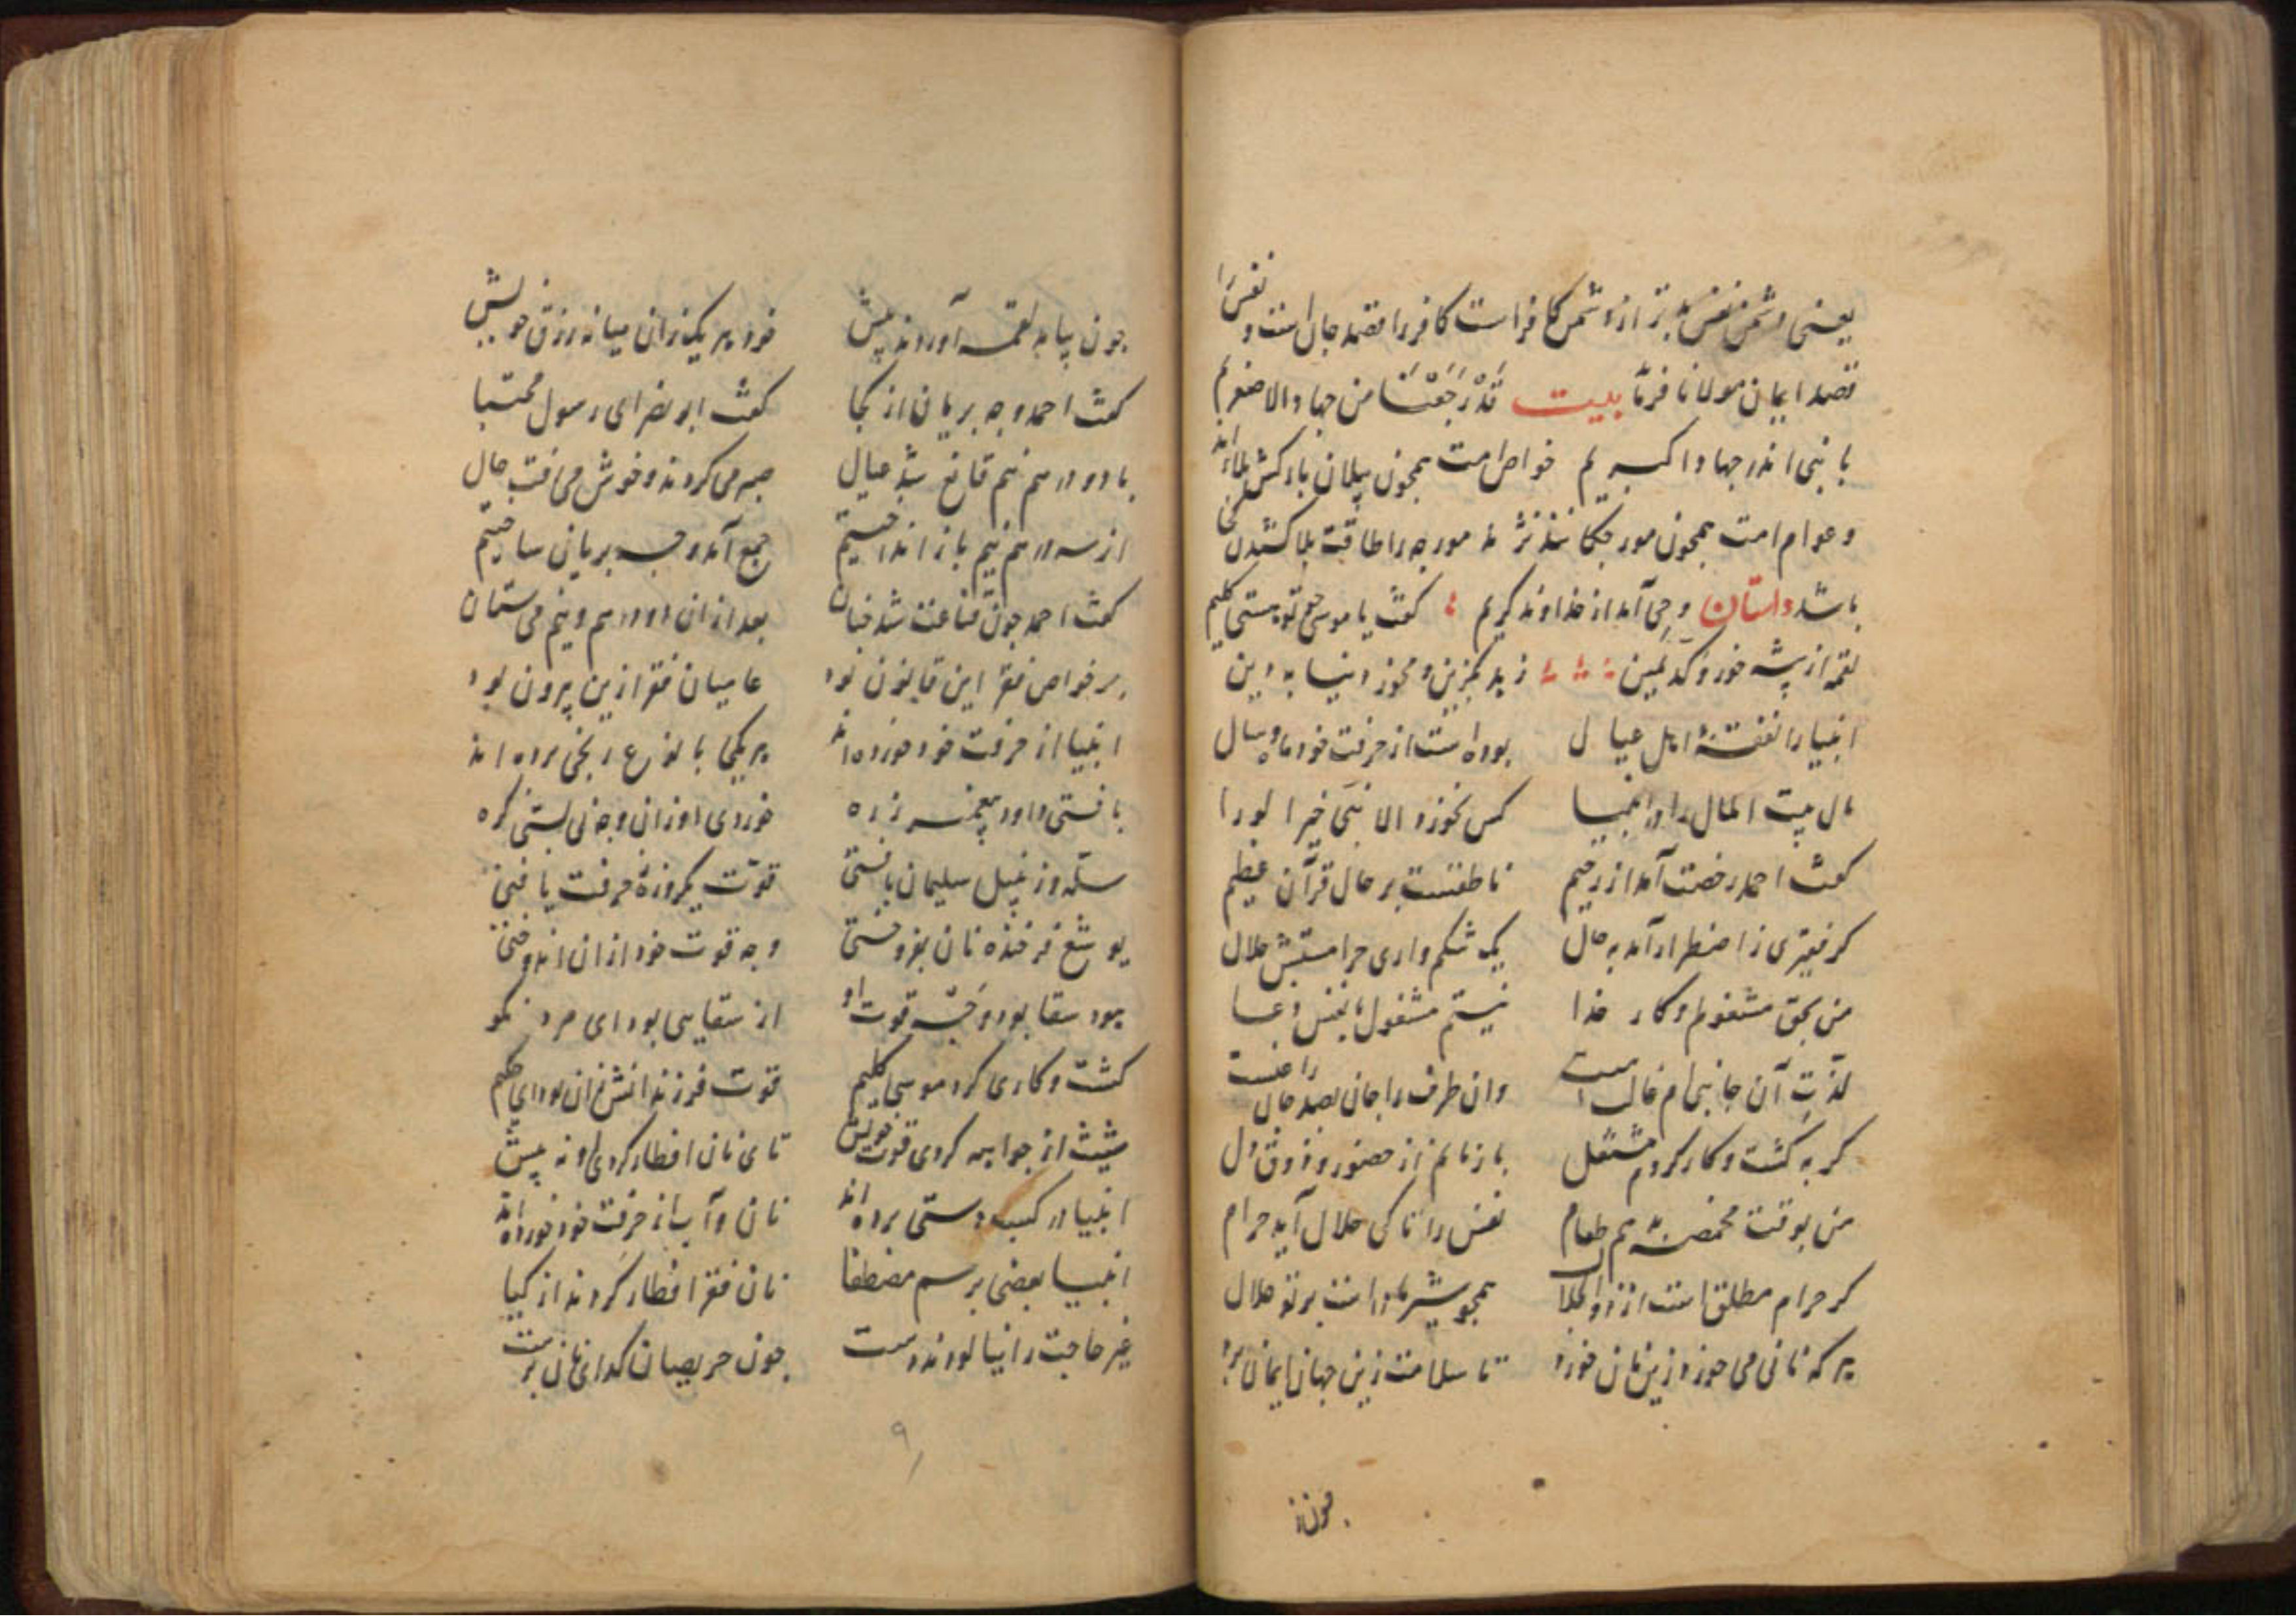 یعنی دشمن نفس بدتر از دشمن کافر است کافر را قصد جان است و نفس را
قصد ایمان مولانا فرماید بیت قَدْ رَجَعْنَا من جهاد الاصغریم
با نبی اندر جهاد اکبریم خواص امت همچون پیلان بارکش بلا اند
و عوام امت همچون مورچگانند نه مورچه را طاقت بلا کشیدن کی
باشد داستان وحی آمد از خداوند کریم کفت یا موسی تو هستی کلیم
لقمه از پیشه خور و کدّ یمین زهد بگزین و مخور دنیا به دین
انبیا را نفقهٔ اهل عیال بوده است از حرفت خود ماه و سال
مال بیت المال را در انبیا کس نخوردی الا نبی خیر الورا
کفت احمد رخصت آمد از رحیم ناطقست بر حال قرآن عظیم
کر فقیری ز اضطرار آمد به حال یک شکم واری حرامستش حلال
من بحق مشغولم و کار خدا نیستم مشغول نفس و
لذّت آن جانبی ام غالب است وان طرف را جان بصد جان راغبست
کر به کشت و کار کردم مشتغل باز مانم از حضور و ذوق دل
من بوقت مخمصه هم طعام نفس را تا کی حلال آید حرام
کر حرام مطلق است از ذو الجلال همچو شیر مادر است بر تو حلال
هر که نانی می خورد زین نان خورد تا سلامت زین جهان ایمان برد
چون از
چون بیامد لقمه آوردند پیش خورد هر یک زان میانه رزق خویش
کفت احمد وجه بریان از کجا کفت ابو نضر ای رسول مجتبا
با دو درهم نیم قانع شد عیال صبر می کردند و خوش می رفت حال
از سه درهم نیم باز انداختیم جمع آمد وجه بریانی ساختیم
کفت احمد چون قناعت شد چنان بعد ازان دو درهم و نیم می ستان
بر خواص فقر این قانون بود عامیان فقر ازین بیرون بود
انبیا از حرفت خود خورده اند هر یکی با نوع رنجی برده اند
بافتی داود پیغمبر زره خوردی او زان وجه نی بستی کره
سله و زنبیل سلیمان بافتی قوت یکروزهٔ حرفت یافتی
یوشع فرخنده نان بفروختی وجه قوت خود ازان اندوختی
هود سقا بود و جبّه قوت او از سقایی بود ای مرد نکو
کشت و کاری کرد موسی کلیم قوت فرزندانش زان بود ای حکیم
شیث از جولاهه کردی قوت خویش تای نان افطار کردی او نه بیش
انبیا در کسب دستی برده اند نان و آب از حرفت خود خورده اند
انبیا بعضی برسم مصطفا نان فقر افطار کردند از کیا
غیر حاجت را نیالودند دست چون حریصان کدای نان پرست
۹